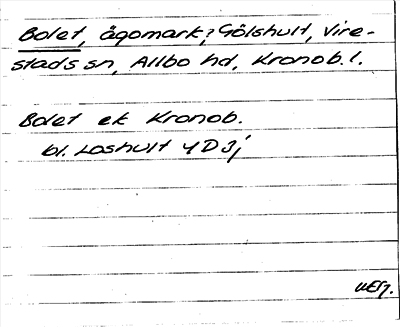 Bolet, ägomark; Gölshult, Vire-
stads sn, Allbo hd, Kronob. l.
Bolet ek Kronob.
bl. Loshult 4D3j